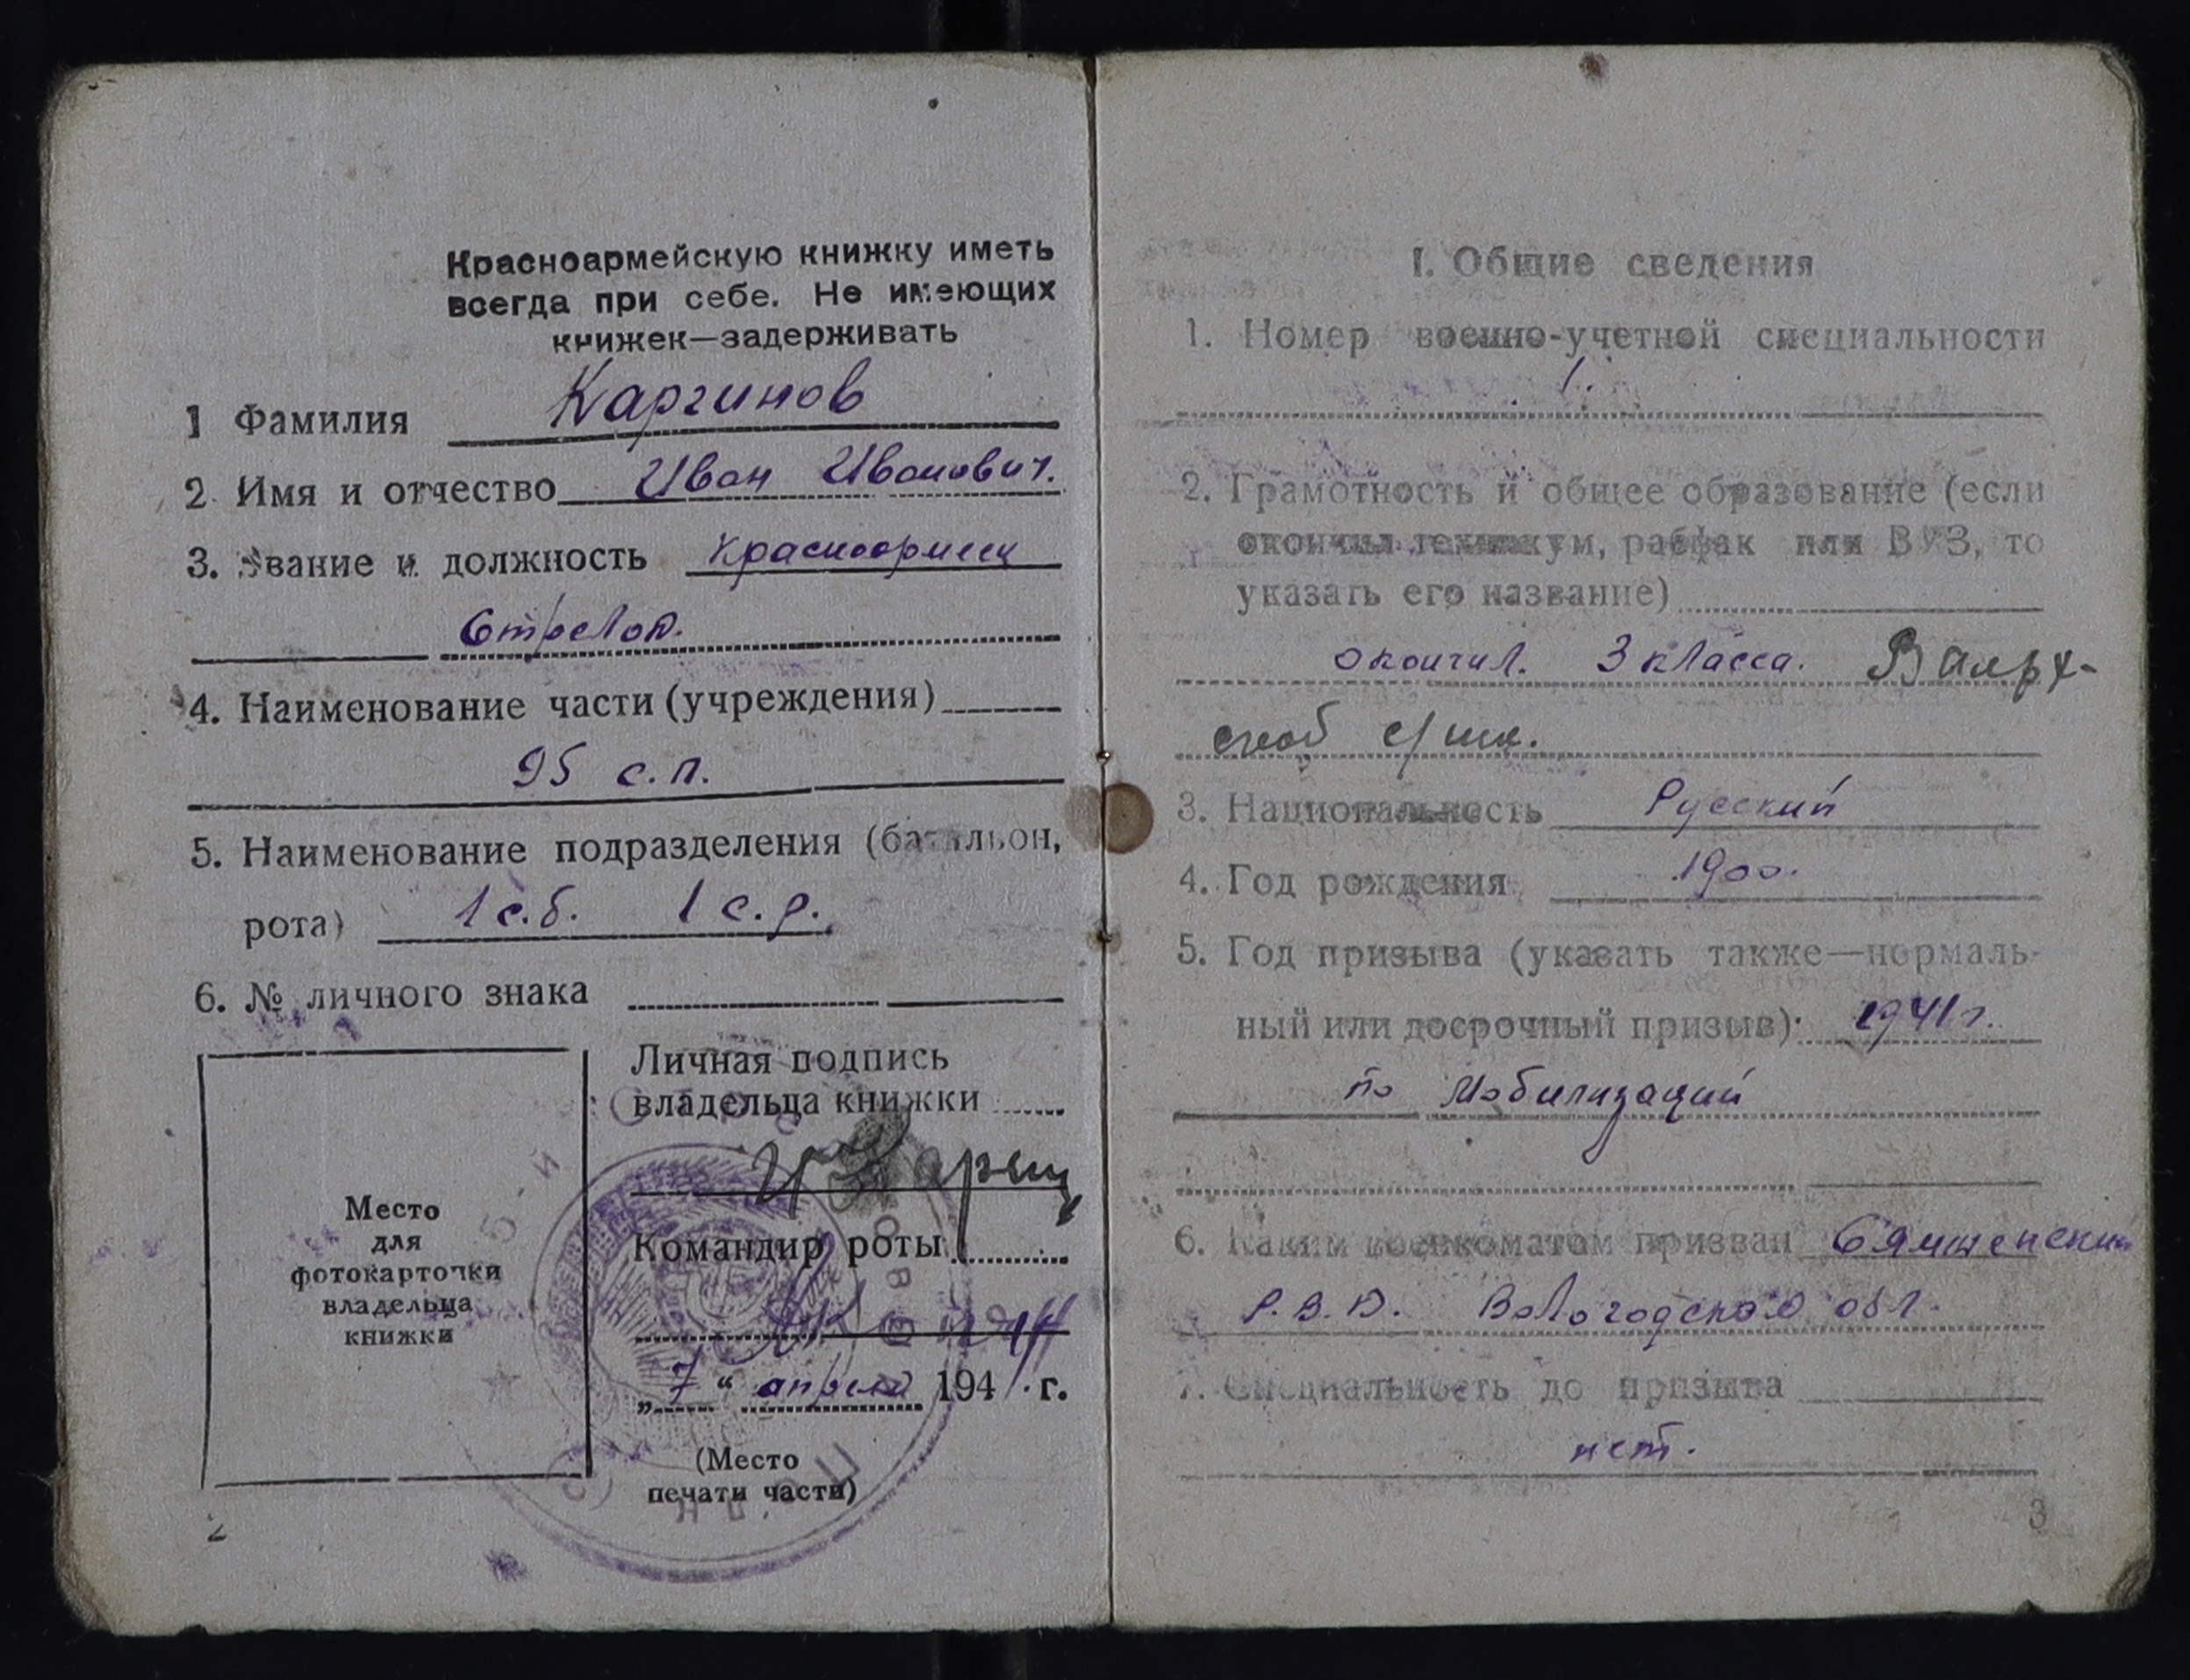 Красноармейскую книжку иметь
всегда при себе. Не имеющих
книжек—задерживать
1 Фамилия Каргинов
2. Имя и отчество Иван Иванович.
3. Звание и должность Красноармеец
Стрелок.
4. Наименование части (учреждения)
95 с.п.
5. Наименование подразделения (батальон,
рота) 1 с.б. 1 с.р.
6. № личного знака
Личная подпись
владельца книжки
Командир роты
„7“ апреля 194 г.
(Место
печати части)
Место
для
фотокарточки
владельца
книжки
2
I. Общие сведения
1. Номер военно-учетной специальности
1.
2. Грамотность и общее образование (если
окончил техникум, рабфак или ВУЗ, то
указать его название)
окончил. 3 класса.
3. Национальность Русский
4. Год рождения 1900.
5. Год призыва (указать также—нормаль-
ный или досрочный призыв): 1941 г.
по Мобилизаций
6. Каким военкоматом призван
Р.В.К. Вологодской обл.
7. Специальность до призыва
нет.
3